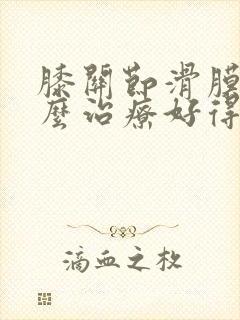 膝關節滑膜
麼治療好得
滴血之枚